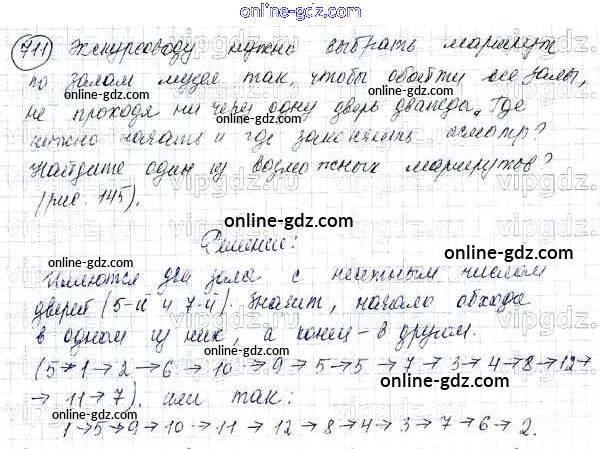 online-gdz.com
711 Экскурсоводу нужно выбрать маршрут
по залам музея так, чтобы обойти все залы,
не проходя ни через одну дверь дважды. Где
нужно начать и где закончить осмотр?
Найдите один из возможных маршрутов?
(рис. 145).
online-gdz.com
Решение:
online-gdz.com
Имеются два зала с нечетным числом
дверей (5-й и 7-й). Значит, начало обхода
в одном из них, а конец - в другом.
(5→1→2→6→10→9→5→5→7→3→4→8→12→
→ 11→7). или так:
1→5→9→10→11→12→8→4→3→7→6→2.
online-gdz.com